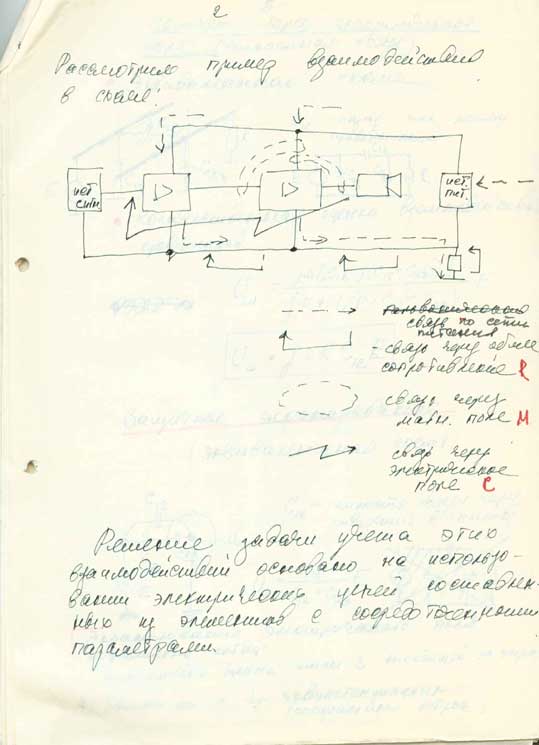 2
Рассмотрим пример взаимодействия
в схеме:
ист.
сигн.
ист.
пит.
связь по сети
питания
связь через общее
сопротивление R
связь через
магн. поле M
связь через
электрическое
поле C
Решение задачи учета этих
взаимодействий основано на использо-
вании электрических цепей составлен-
ных из элементов с сосредоточенными
параметрами.